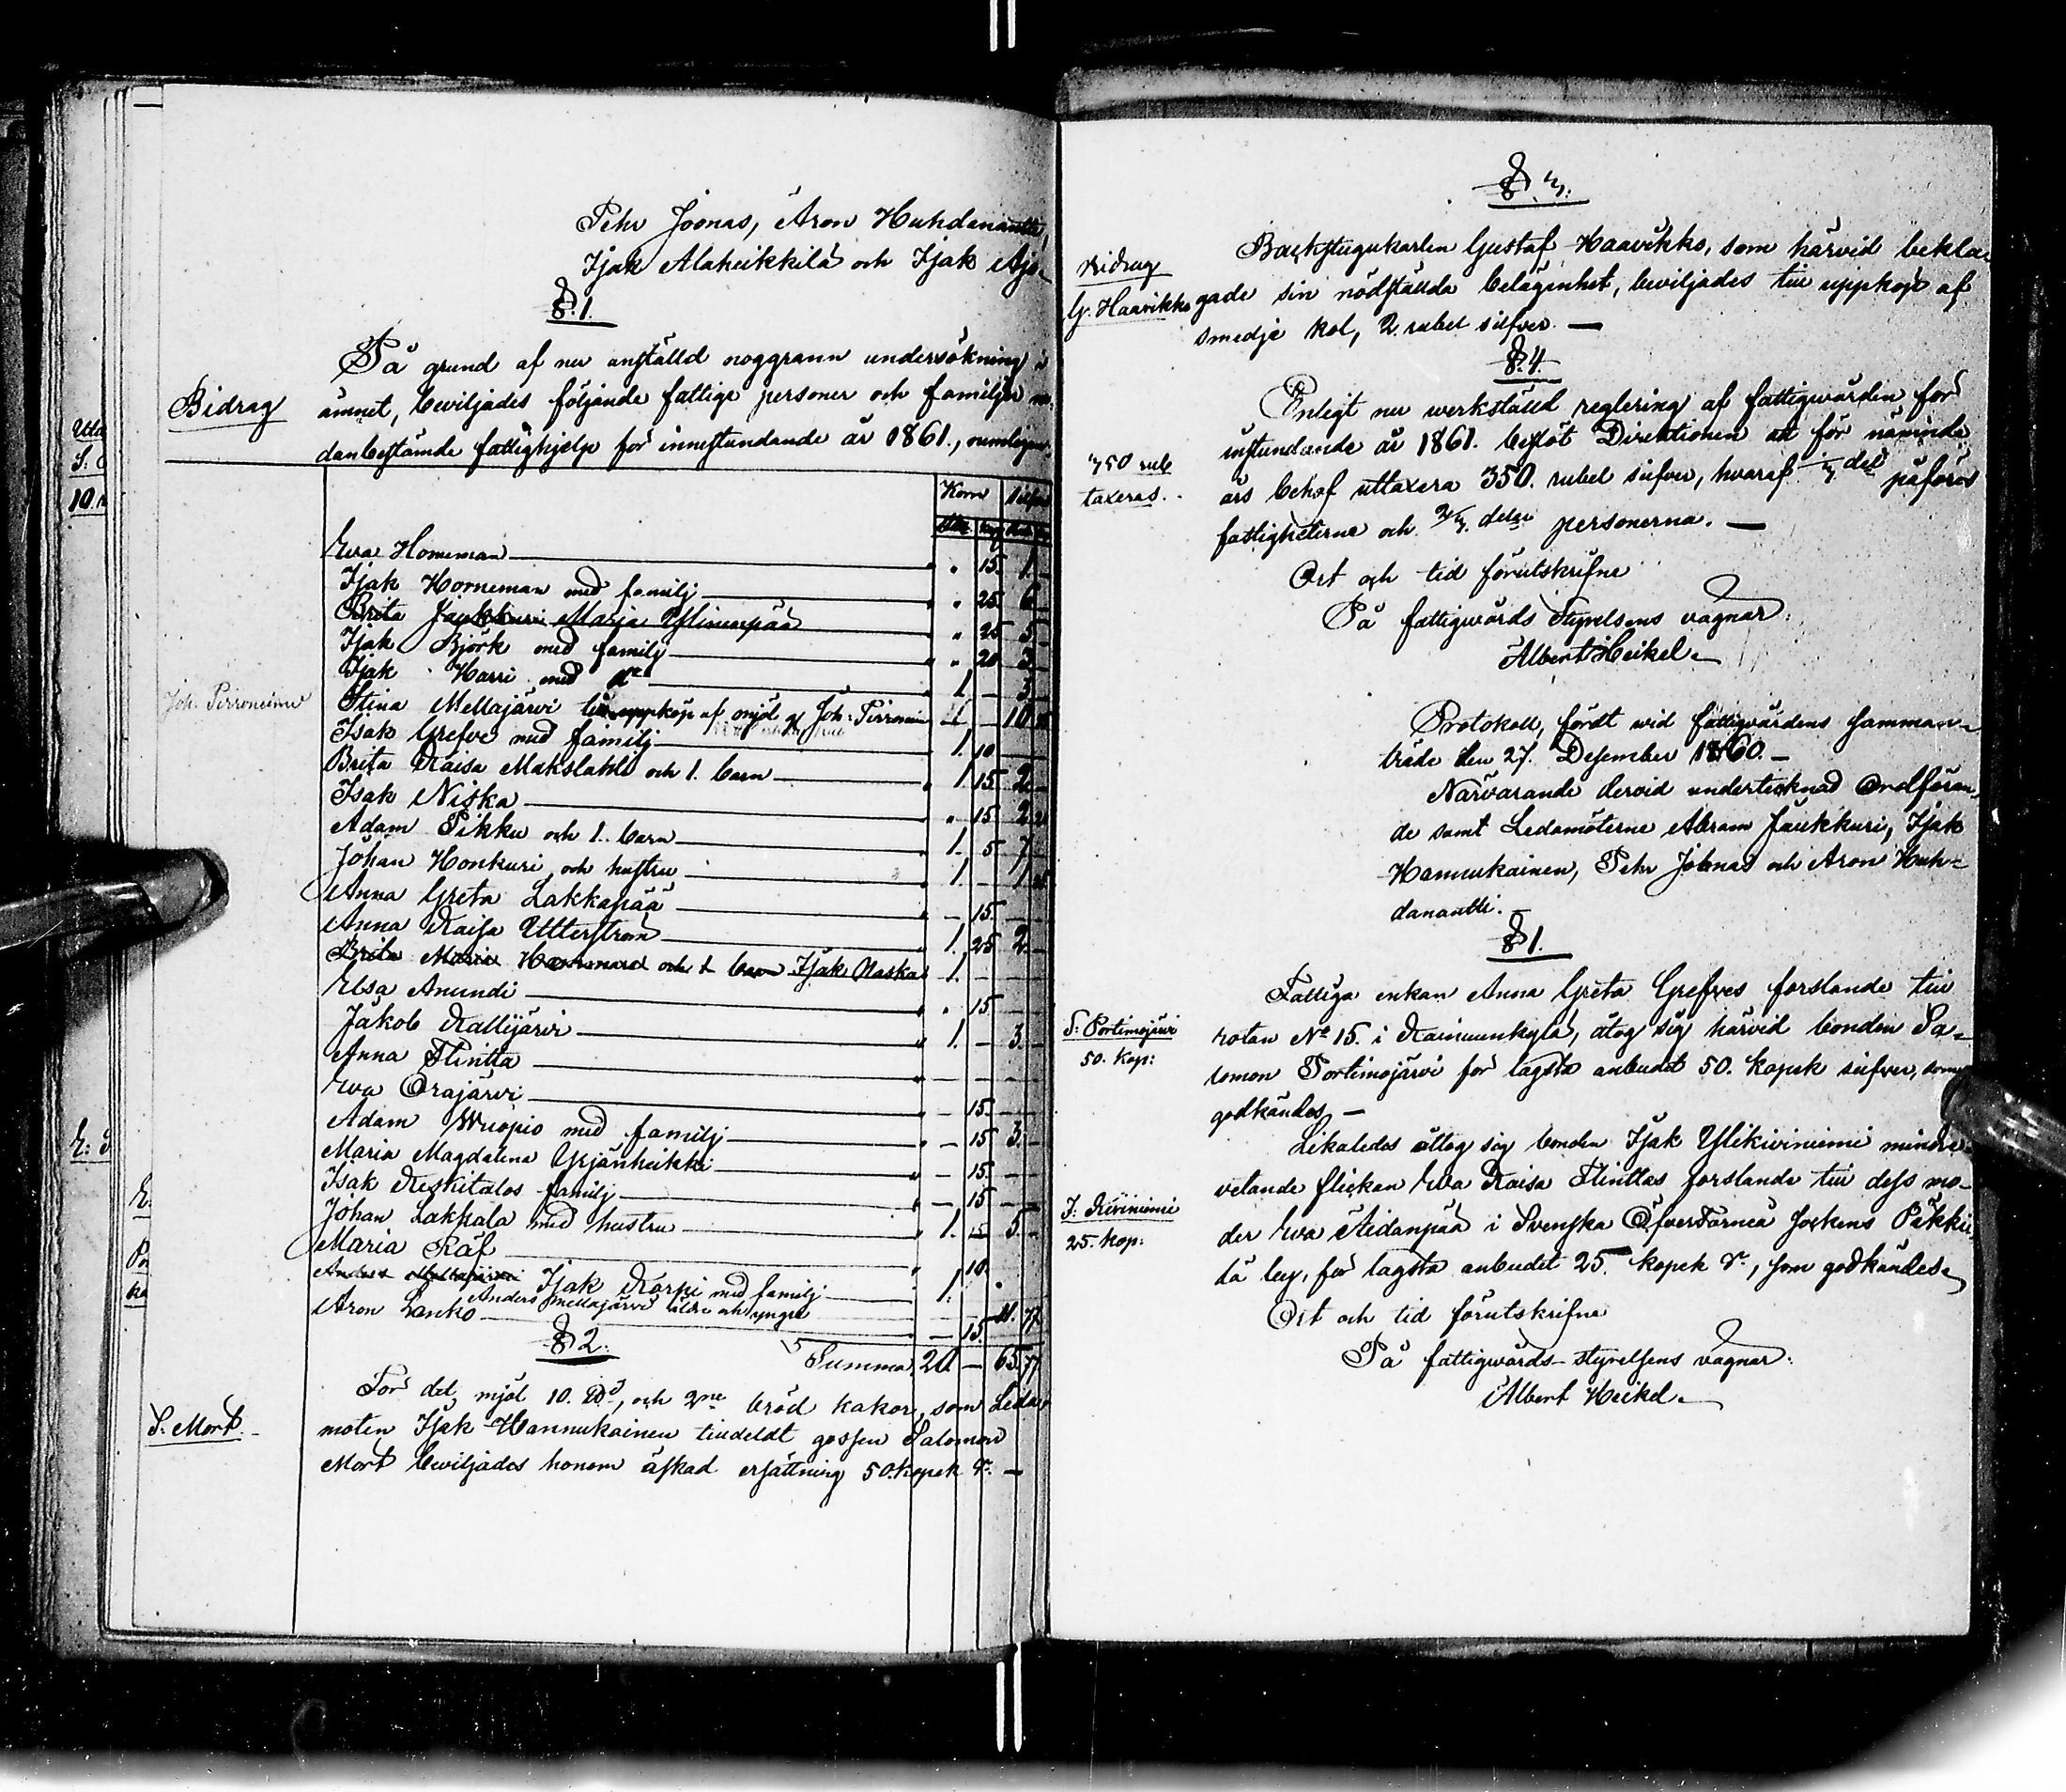 Pehr Joonas, Aron Huhdanantti,
Isak Alaheikkilä och Isak Ajo-
§. 1.
På grund af nu anställd noggrann undersökning i
Bidrag
ämnet, beviljades följande fattige personer och familjer ne-
danbestämde fattighjelp för innestundande år 1861., nemligen:
Korn Silfver
Eva Horneman " 15. 1. –
Isak Horneman med familj " 25. 6 –
Brita Jaukkuri Maria Ylinenpää " 25 5 –
Isak Björk med familj " 20 3 –
Isak Harri med do 1 – 3 –
Joh. Pirroneimi
Stina Mellajärvi till uppköp af mjöl af Joh: Pirroniemi 1 – 10
Isak Grefve med familj 1. 10 –
Brita Kaisa Makslahti och 1. barn 1 15 2 –
Isak Niska " 15 2
Adam Pikku och 1. barn 1. 5 7 –
Johan Honkuri och hustru 1. – 1
Anna Greta Lakkapää – 15. –
Anna Kaisa Utterström 1. 25 2. –
Brita Maria och 1 barn Isak Raska 1. –
Elsa Anundi " 15 –
Jakob Kallijärvi 1. – 3. –
Anna Flintta – – –
Eva Orajärvi – 15. –
Adam Wuopio med familj – 15 3. –
Maria Magdalena Yrjänheikki – 15. –
Isak Keskitalos familj – 15 –
Johan Lakkala med hustru 1. 15 5. –
Maria Räf " 10. –
Anders Mellajärvi Isak Karpi med familj 1.
Anders Mellajärvi äldre och yngre 11. 77
Aron Lanko – 15.
§ 2.
Summa 20 – 65. 77
För det mjöl 10. ℔, och 2ne bröd kakor, som Leda-
S. Mort.
moten Isak Hannukainen tilldeldt gossen Salomon
Mort beviljades honom äskad ersättning 50. kopek Sr. –
§ 3.
Bidrag
Backstugukarlen Gustaf Haavikko, som härvid bekla-
G. Haavikko
gade sin nödställda belägenhet, beviljades till uppköp af
smedje kol, 2. rubel silfver. –
§. 4.
Enligt nu werkställd reglering af fattigvården för
instundande år 1861. beslöt Direktionen att för nämnde
350 rub
taxeras.
års behof uttaxera 350. rubel silfver, hvaraf 1/3 del påföres
fattigheterne och 2/3. delar personerna. –
Ort och tid förutskrifne
På fattigvårds Styrelsens vägnar:
Albert Heikel.
Protokoll, fördt wid fattigvårdens samman-
träde den 27. Desember 1860. –
Närvarande dervid undertecknad Ordföran-
de samt Ledamöterne Abram Jaukkuri, Isak
Hannukainen, Pehr Joonas och Aron Huh-
danantti. –
§ 1.
Fattiga enkan Anna Greta Grefves forslande till
S: Portimojärvi
50. kop:
rotan No 15. i Kainuunkylä, åtog sig härvid bonden Sa-
lomon Portimojärvi för lägsta anbudet 50. kopek silfver, som
godkändes. –
Likaledes åtog sig bonden Isak Ylikiviniemi mindre
I: Kiviniemi
25. kop:
vetande flickan Eva Kaisa Flinttas forslande till dess mo-
der Eva Aidanpää i Svenska Öfvertorneå Sockens Päkki-
lä by, för lägsta anbudet 25. kopek Sr., som godkändes.
Ort och tid förutskrifne
På fattigvårds-styrelsens vägnar:
Albert Heikel.